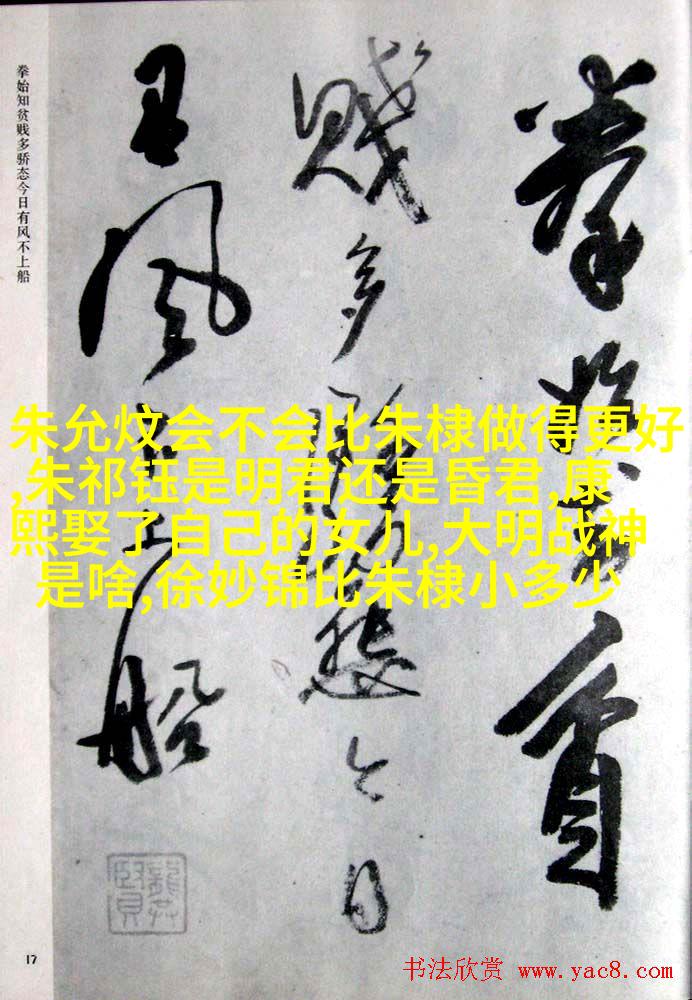 拳始知貧
賤多驕態今日
有風不上船
拳始知贫贱多骄态今日有风不上船
朱允炆会不会比朱棣做得更好
,朱祁钰是明君还是昏君,康
熙娶了自己的女儿,大明战神
是啥,徐妙锦比朱棣小多少
17
书法欣赏 www.yac8.com